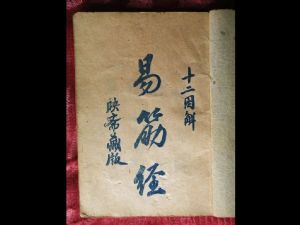 十二图解
易筋经
映斋藏版